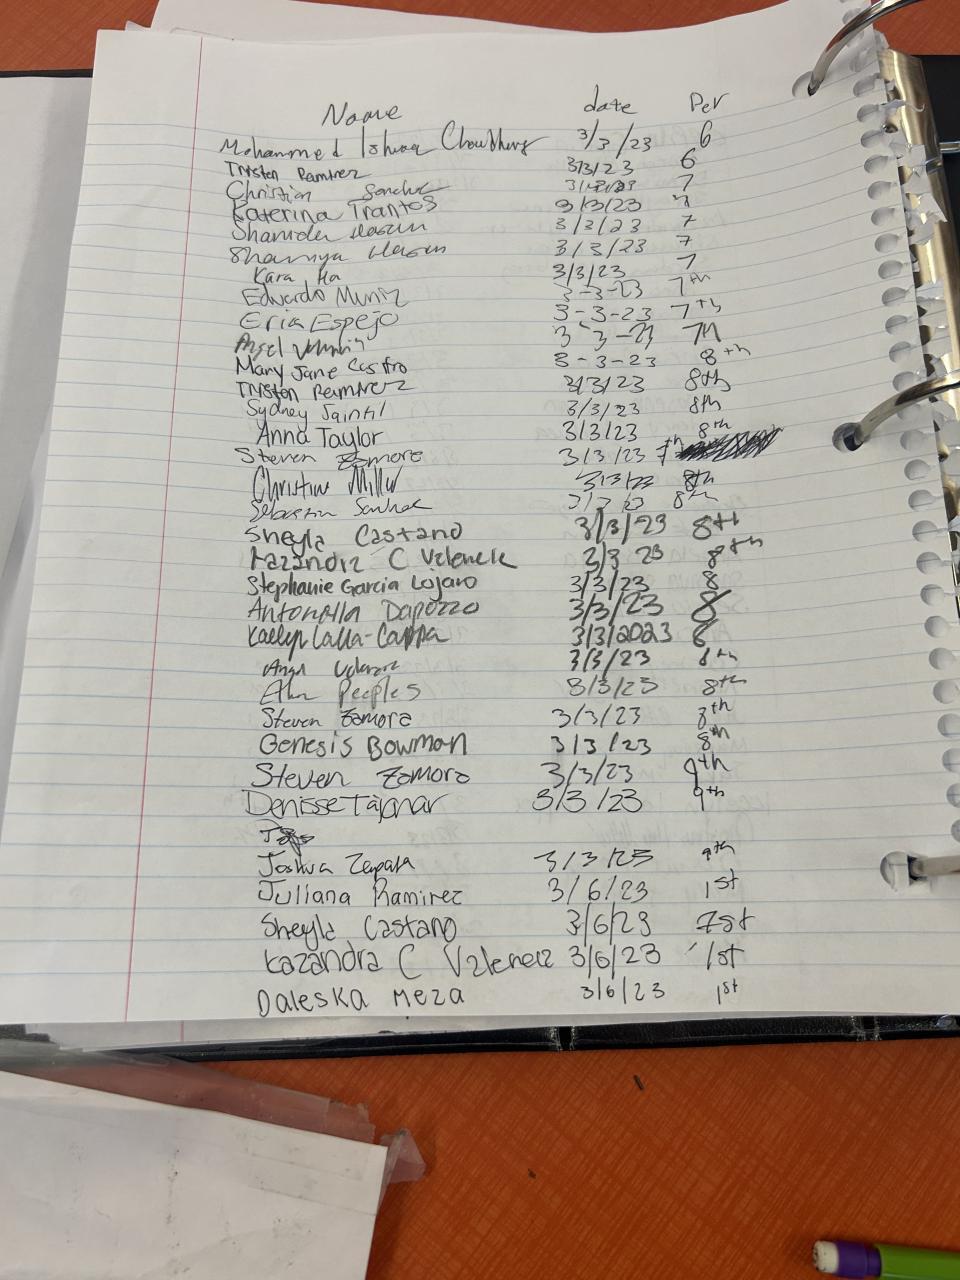 Name date Per
Mohammed Ishraq Chowdhury 3/3/23 6
Tristen Ramirez 3/3/23 6
Christian 7
Katerina Trantos 3/3/23 7
Hasan 3/3/23 7
Hasan 3/3/23 7
Kara Ha 3/3/23 7
Eduardo Muniz 3-3-23 7th
Eria Espejo 3-3-23 7th
Angel 3-3-23
Mary Jane Castro 3-3-23 8th
Tristen Ramirez 3/3/23 8th
Sydney Saintil 3/3/23 8th
Anna Taylor 3/3/23 8th
Steven Zamora 3/3/23 7th
Christine Miller 3/3/23 8th
Sebastian 3/3/23 8th
Sheyla Castano 3/3/23 8th
Kazandra C 3/3 23 8th
Stephanie Garcia Lojano 3/3/23 8
Antonella Dapozzo 3/3/23 8
Kaelyn Lalla-Cappa 3/3/2023 8
Angel 3/3/23 8th
Peeples 3/3/23 8th
Steven Zamora 3/3/23 8th
Genesis Bowman 3/3/23 8th
Steven Zamora 3/3/23 9th
Denisse Tajonar 3/3/23 9th
Joshua Zapata 3/3/23 9th
Juliana Ramirez 3/6/23 1st
Sheyla Castano 3/6/23 1st
Kazandra C 3/6/23 1st
Daleska Meza 3/6/23 1st